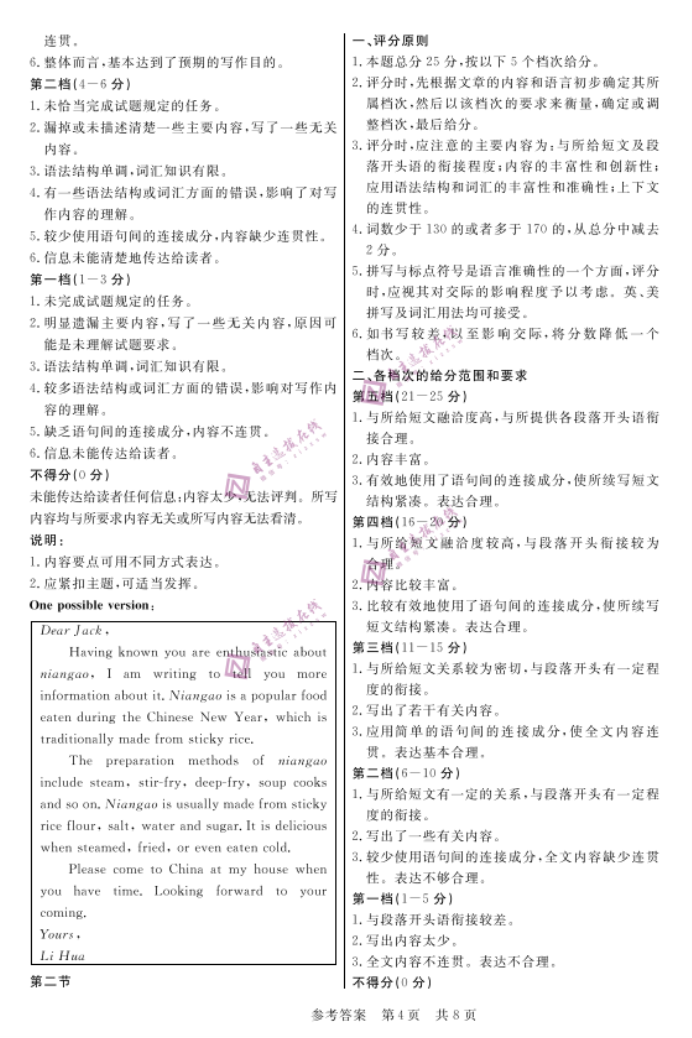 连贯。
6.整体而言,基本达到了预期的写作目的。
第二档(4—6分)
1.未恰当完成试题规定的任务。
2.漏掉或未描述清楚一些主要内容,写了一些无关
内容。
3.语法结构单调,词汇知识有限。
4.有一些语法结构或词汇方面的错误,影响了对写
作内容的理解。
5.较少使用语句间的连接成分,内容缺少连贯性。
6.信息未能清楚地传达给读者。
第一档(1—3分)
1.未完成试题规定的任务。
2.明显遗漏主要内容,写了一些无关内容,原因可
能是未理解试题要求。
3.语法结构单调,词汇知识有限。
4.较多语法结构或词汇方面的错误,影响对写作内
容的理解。
5.缺乏语句间的连接成分,内容不连贯。
6.信息未能传达给读者。
不得分(0分)
未能传达给读者任何信息;内容太少,无法评判。所写
内容均与所要求内容无关或所写内容无法看清。
说明:
1.内容要点可用不同方式表达。
2.应紧扣主题,可适当发挥。
One possible version:
Dear Jack,
Having known you are enthusiastic about
niangao, I am writing to tell you more
information about it. Niangao is a popular food
eaten during the Chinese New Year, which is
traditionally made from sticky rice.
The preparation methods of niangao
include steam, stir-fry, deep-fry, soup cooks
and so on. Niangao is usually made from sticky
rice flour, salt, water and sugar. It is delicious
when steamed, fried, or even eaten cold.
Please come to China at my house when
you have time. Looking forward to your
coming.
Yours,
Li Hua
第二节
一、评分原则
1.本题总分25分,按以下5个档次给分。
2.评分时,先根据文章的内容和语言初步确定其所
属档次,然后以该档次的要求来衡量,确定或调
整档次,最后给分。
3.评分时,应注意的主要内容为:与所给短文及段
落开头语的衔接程度;内容的丰富性和创新性;
应用语法结构和词汇的丰富性和准确性;上下文
的连贯性。
4.词数少于130的或者多于170的,从总分中减去
2分。
5.拼写与标点符号是语言准确性的一个方面,评分
时,应视其对交际的影响程度予以考虑。英、美
拼写及词汇用法均可接受。
6.如书写较差,以至影响交际,将分数降低一个
档次。
二、各档次的给分范围和要求
第五档(21—25分)
1.与所给短文融洽度高,与所提供各段落开头语衔
接合理。
2.内容丰富。
3.有效地使用了语句间的连接成分,使所续写短文
结构紧凑。表达合理。
第四档(16—20分)
1.与所给短文融洽度较高,与段落开头衔接较为
合理。
2.内容比较丰富。
3.比较有效地使用了语句间的连接成分,使所续写
短文结构紧凑。表达合理。
第三档(11—15分)
1.与所给短文关系较为密切,与段落开头有一定程
度的衔接。
2.写出了若干有关内容。
3.应用简单的语句间的连接成分,使全文内容连
贯。表达基本合理。
第二档(6—10分)
1.与所给短文有一定的关系,与段落开头有一定程
度的衔接。
2.写出了一些有关内容。
3.较少使用语句间的连接成分,全文内容缺少连贯
性。表达不够合理。
第一档(1—5分)
1.与段落开头语衔接较差。
2.写出内容太少。
3.全文内容不连贯。表达不合理。
不得分(0分)
参考答案 第4页 共8页
自主选拔在线
自主选拔在线
自主选拔在线
自主选拔在线